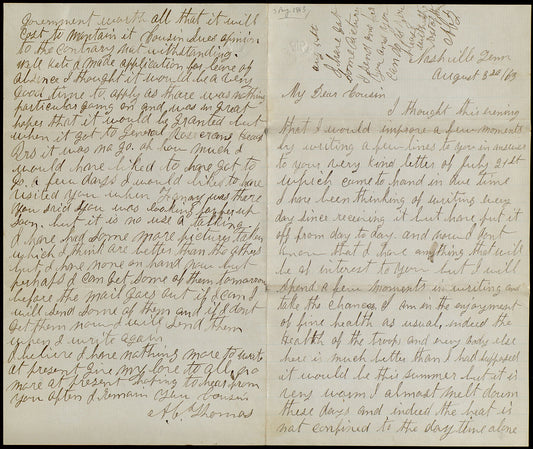 Nashville Tenn
August 3rd /63
My Dear Cousin
I thought this evening
that I would improve a few moments
by writing a few lines to you in answer
to your very kind letter of July 21st
which came to hand in due time
I have been thinking of writing every
day since receiving it but have put it
off from day to day. and now I dont
know that I have anything that will
be of interest to you but I will
spend a few moments in writing and
take the chances I am in the enjoyment
of fine health as usual, indeed the
health of the troops and every body else
here is much better than I had supposed
it would be this summer but it is
very warm I almost melt down
these days and indeed the heat is
not confined to the day time alone
Government worth all that it will
cost to maintain it Cousin
to the contrary notwithstanding.
Well Kate I made application for leave of
absence I thought it would be a very
good time to apply as there was nothing
particular going on and was in great
hopes that it would be granted but
when it got to General Rosecrans Head
Qrs it was no go. oh how much I
would have liked to have got to
go. a few days I would like to have
visited you when was there
you said you was looking for her up
soon, but it is no use a talking
I have had some more pictures taken
which I think are better than the others
but I have none on hand now but
perhaps I can get some of them tomorrow
before the mail goes out if I can I
will send some of them and if I dont
get them now I will send them
when I write again
I believe I have nothing more to write
at present Give my love to all, no
more at present hoping to hear from
you often I remain your cousin
A.C. Thomas